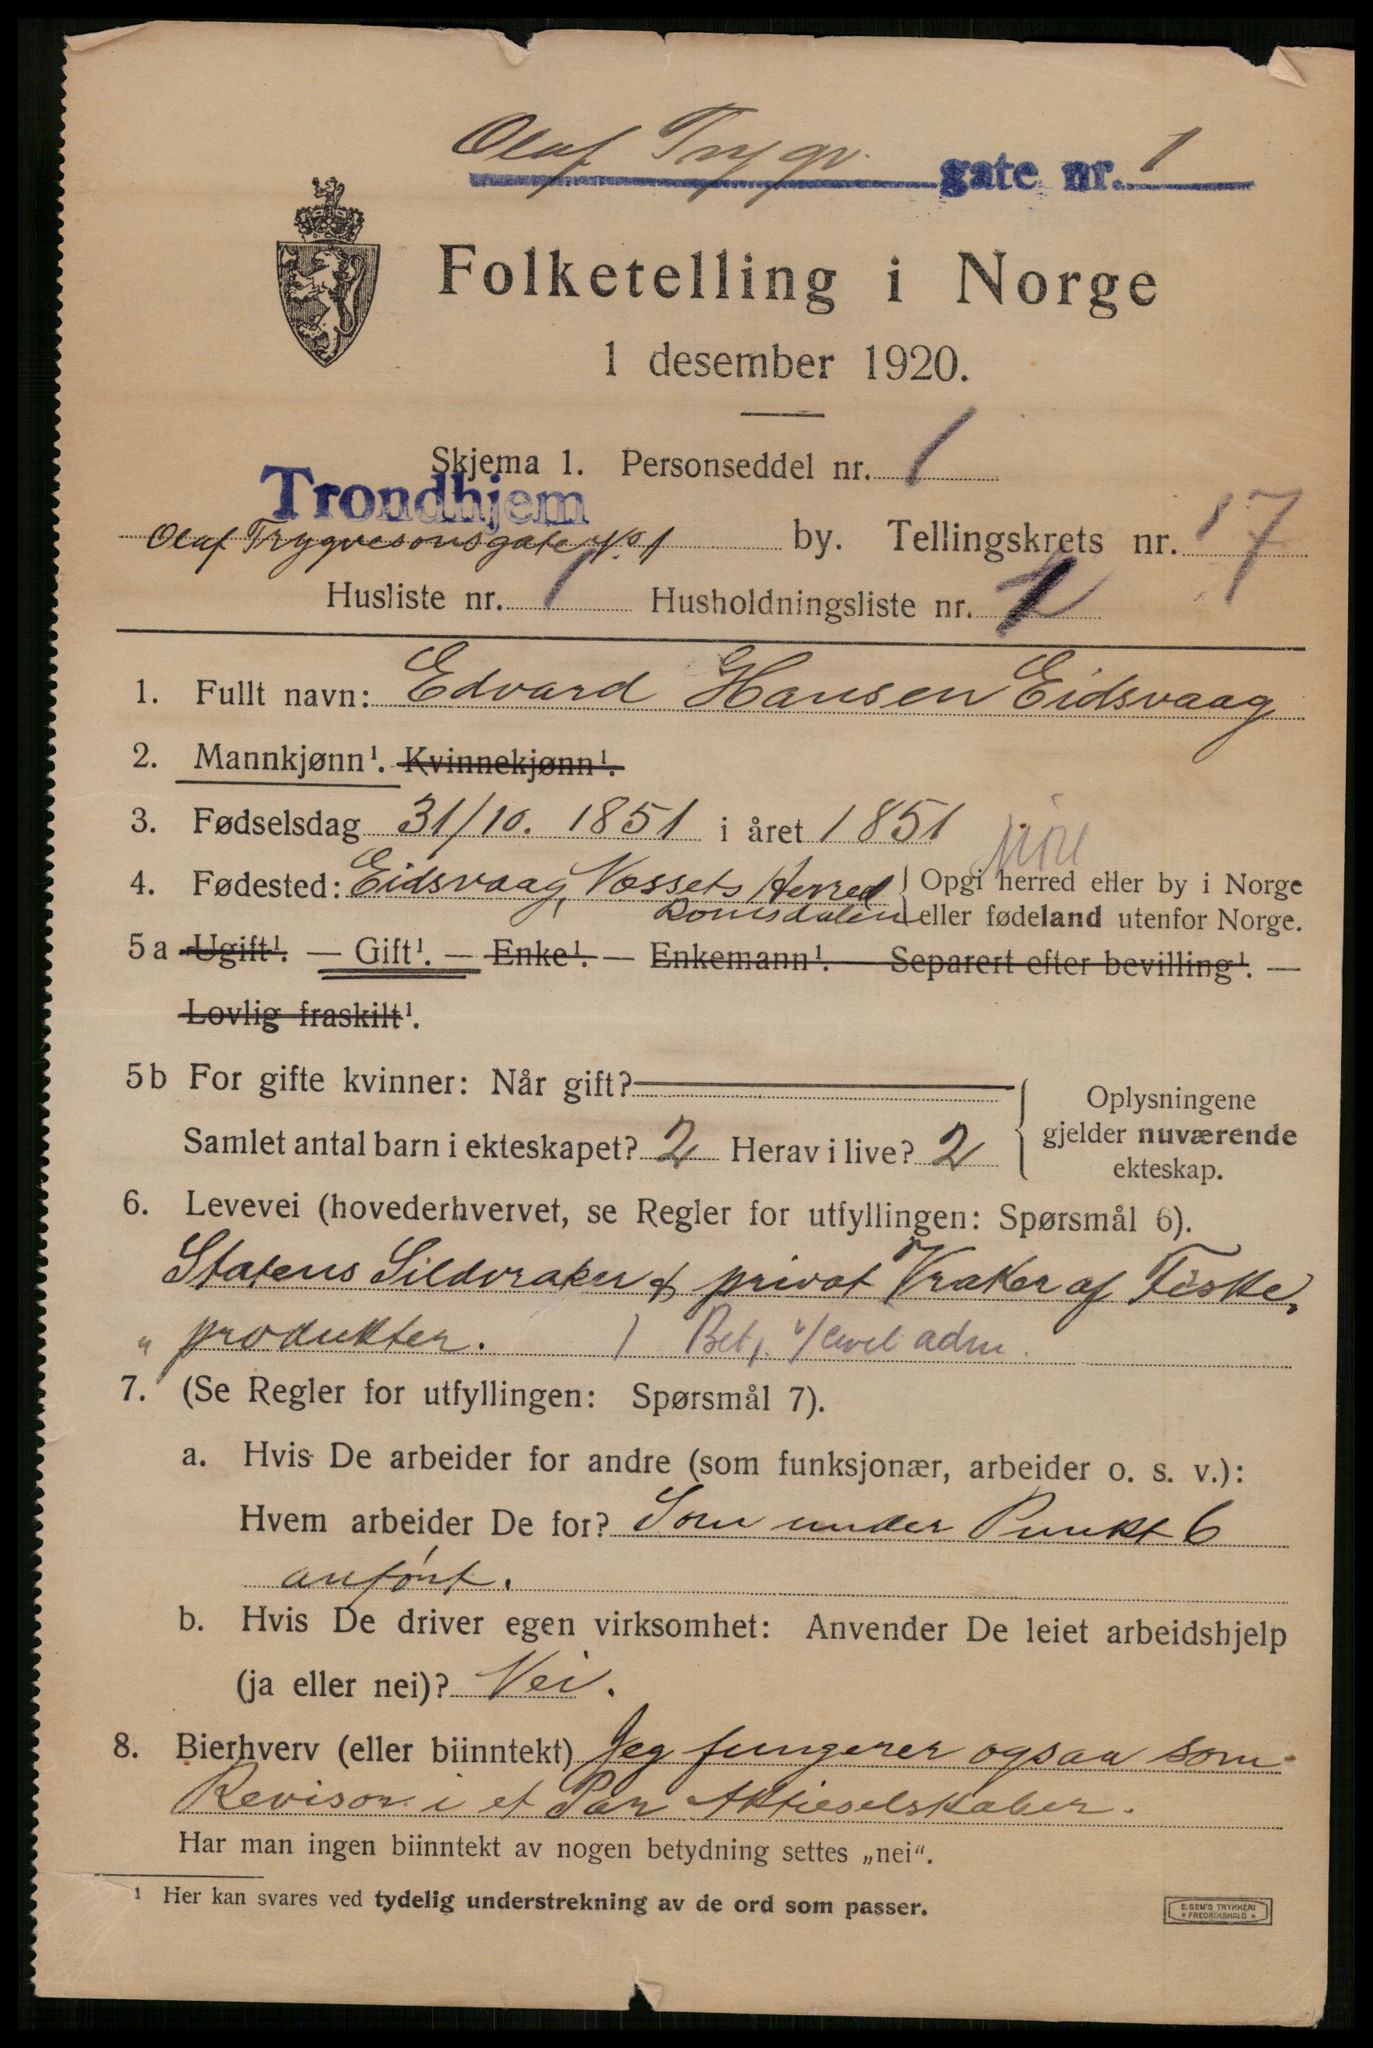 Olaf Trygv. gate nr. 1
Folketelling i Norge
1 desember 1920.
Skjema 1. Personseddel nr. 1
Trondhjem
Olaf Trygvesonsgate No 1 by. Tellingskrets nr. 17
Husliste nr. 1 Husholdningsliste nr.
1. Fullt navn: Edvard Hansen Eidsvaag
2. Mannkjønn¹. Kvinnekjønn¹.
3. Fødselsdag 31/10. 1851 i året 1851
Möre
4. Fødested: Eidsvaag, Nessets Herred Opgi herred eller by i Norge
Romsdalen eller fødeland utenfor Norge.
5 a Ugift¹. — Gift¹. — Enke¹. — Enkemann¹. — Separert efter bevilling¹. —
Lovlig fraskilt¹.
5 b For gifte kvinner: Når gift?
Samlet antal barn i ekteskapet? 2 Herav i live? 2
Oplysningene
gjelder nuværende
ekteskap.
6. Levevei (hovederhvervet, se Regler for utfyllingen: Spørsmål 6).
Statens Sildvraker & privat Vraker af Fiske,
" produkter. ) Betj. v/ civil adm.
7. (Se Regler for utfyllingen: Spørsmål 7).
a. Hvis De arbeider for andre (som funksjonær, arbeider o. s. v.):
Hvem arbeider De for? Som under Punkt 6
anført.
b. Hvis De driver egen virksomhet: Anvender De leiet arbeidshjelp
(ja eller nei)? Nei.
8. Bierhverv (eller biinntekt) Jeg fungerer ogsaa som
Revisor i et Par Aktieselskaber.
Har man ingen biinntekt av nogen betydning settes „nei“.
¹ Her kan svares ved tydelig understrekning av de ord som passer.
E. SEM'S TRYKKERI
* FREDRIKSHALD *